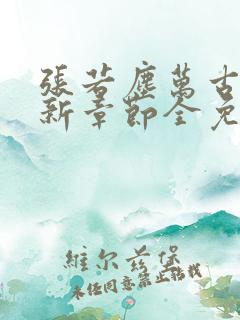 張若塵萬古
新章節全免
維尔兹堡
未经同意禁止转载